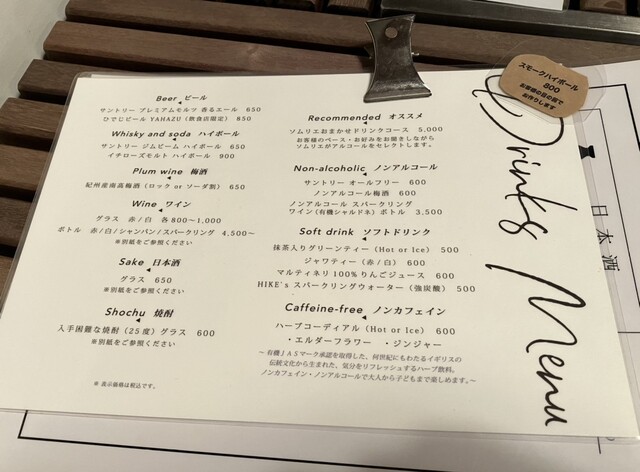 Beer ビール
サントリー プレミアムモルツ 香るエール 650
ひでじビール YAHAZU (飲食店限定) 850
Whisky and soda ハイボール
サントリー ジムビーム ハイボール 650
イチローズモルト ハイボール 900
Plum wine 梅酒
紀州産南高梅酒 (ロック or ソーダ製) 650
Wine ワイン
グラス 赤/白 各800~1,000
ボトル 赤/白/シャンパン/スパークリング 4,500~
※別紙をご参照ください
Sake 日本酒
グラス 650
※別紙をご参照ください
Shochu 焼酎
入手困難な焼酎 (25度) グラス 600
※別紙をご参照ください
※ 表示価格は税込です。
Recommended オススメ
ソムリエおまかせドリンクコース 5,000
お客様のペース・お好みをお聞きしながら
ソムリエがアルコールをセレクトします。
Non-alcoholic ノンアルコール
サントリー オールフリー 600
ノンアルコール梅酒 600
ノンアルコール スパークリング
ワイン (有機シャルドネ) ボトル 3,500
Soft drink ソフトドリンク
抹茶入りグリーンティー (Hot or Ice) 500
ジャワティー (赤/白) 600
マルティネリ 100%りんごジュース 600
HIKE's スパークリングウオーター (強炭酸) 500
Caffeine-free ノンカフェイン
ハーブコーディアル (Hot or Ice) 600
・エルダーフラワー ・ジンジャー
~有機JASマーク承認を取得した、何世紀にもわたるイギリスの
伝統文化から生まれた、気分をリフレッシュするハーブ飲料。
ノンカフェイン・ノンアルコールで大人から子どもまで楽しめます。~
Drinks Menu
スモークハイボール
800
お客様の目の前で
お作りします
日本酒